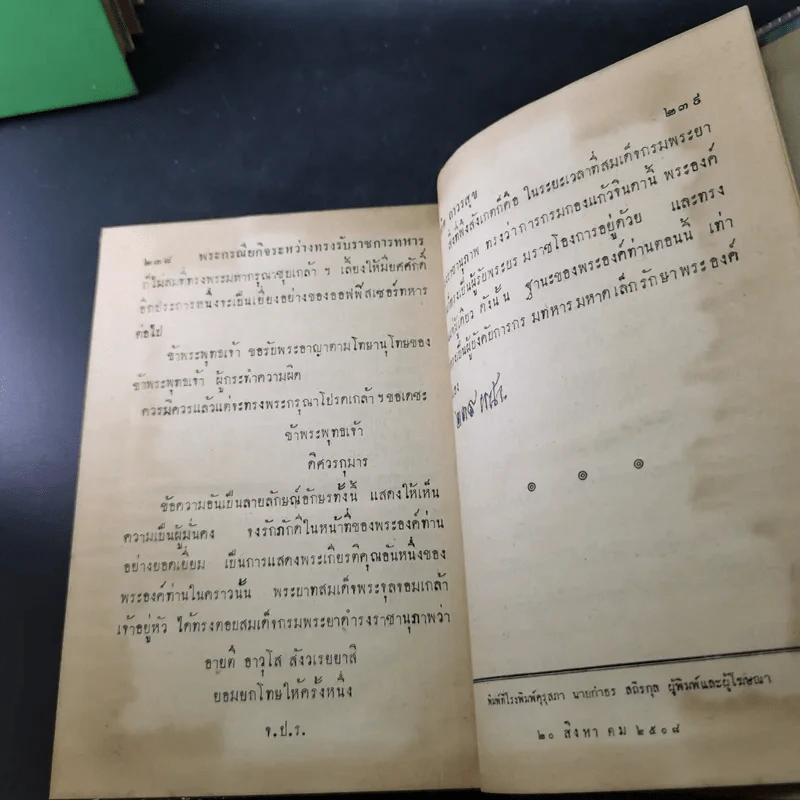 ๒๓๘ พระกรณียกิจระหว่างทรงรับราชการทหาร
ก็ไม่สมที่ทรงพระมหากรุณาชุบเกล้า ฯ เลี้ยงให้มียศศักดิ์
อีกประการหนึ่งจะเป็นเยี่ยงอย่างของออฟฟิสเซอร์ทหาร
ต่อไป
ข้าพระพุทธเจ้า ขอรับพระอาญาตามโทษานุโทษของ
ข้าพระพุทธเจ้า ผู้กระทำความผิด
ควรมิควรแล้วแต่จะทรงพระกรุณาโปรดเกล้า ฯ ขอเดชะ
ข้าพระพุทธเจ้า
ดิศวรกุมาร
ข้อความอันเป็นลายลักษณ์อักษรทั้งนี้ แสดงให้เห็น
ความเป็นผู้มั่นคง จงรักภักดีในหน้าที่ของพระองค์ท่าน
อย่างยอดเยี่ยม เป็นการแสดงพระเกียรติคุณอันหนึ่งของ
พระองค์ท่านในคราวนั้น พระบาทสมเด็จพระจุลจอมเกล้า
เจ้าอยู่หัว ได้ทรงตอบสมเด็จกรมพระยาดำรงราชานุภาพว่า
อายตึ อาวุโส สังวเรยยาสิ
ยอมยกโทษให้ครั้งหนึ่ง
จ.ป.ร.
๒๓๙
ถาวรสุข
สิ่งที่พึงสังเกตก็คือ ในระยะเวลาที่สมเด็จกรมพระยา
ราชานุภาพ ทรงว่าการกรมกองแก้วจินดานี้ พระองค์
เป็นผู้รับพระบรมราชโองการอยู่ด้วย และทรง
เดียว ดังนั้น ฐานะของพระองค์ท่านตอนนี้ เท่า
เป็นผู้บังคับการกรมทหารมหาดเล็กรักษาพระองค์
๒๓๙ หน้า.
พิมพ์ที่โรงพิมพ์คุรุสภา นายกำธร สถิรกุล ผู้พิมพ์และผู้โฆษณา
๒๐ สิงหาคม ๒๕๐๘